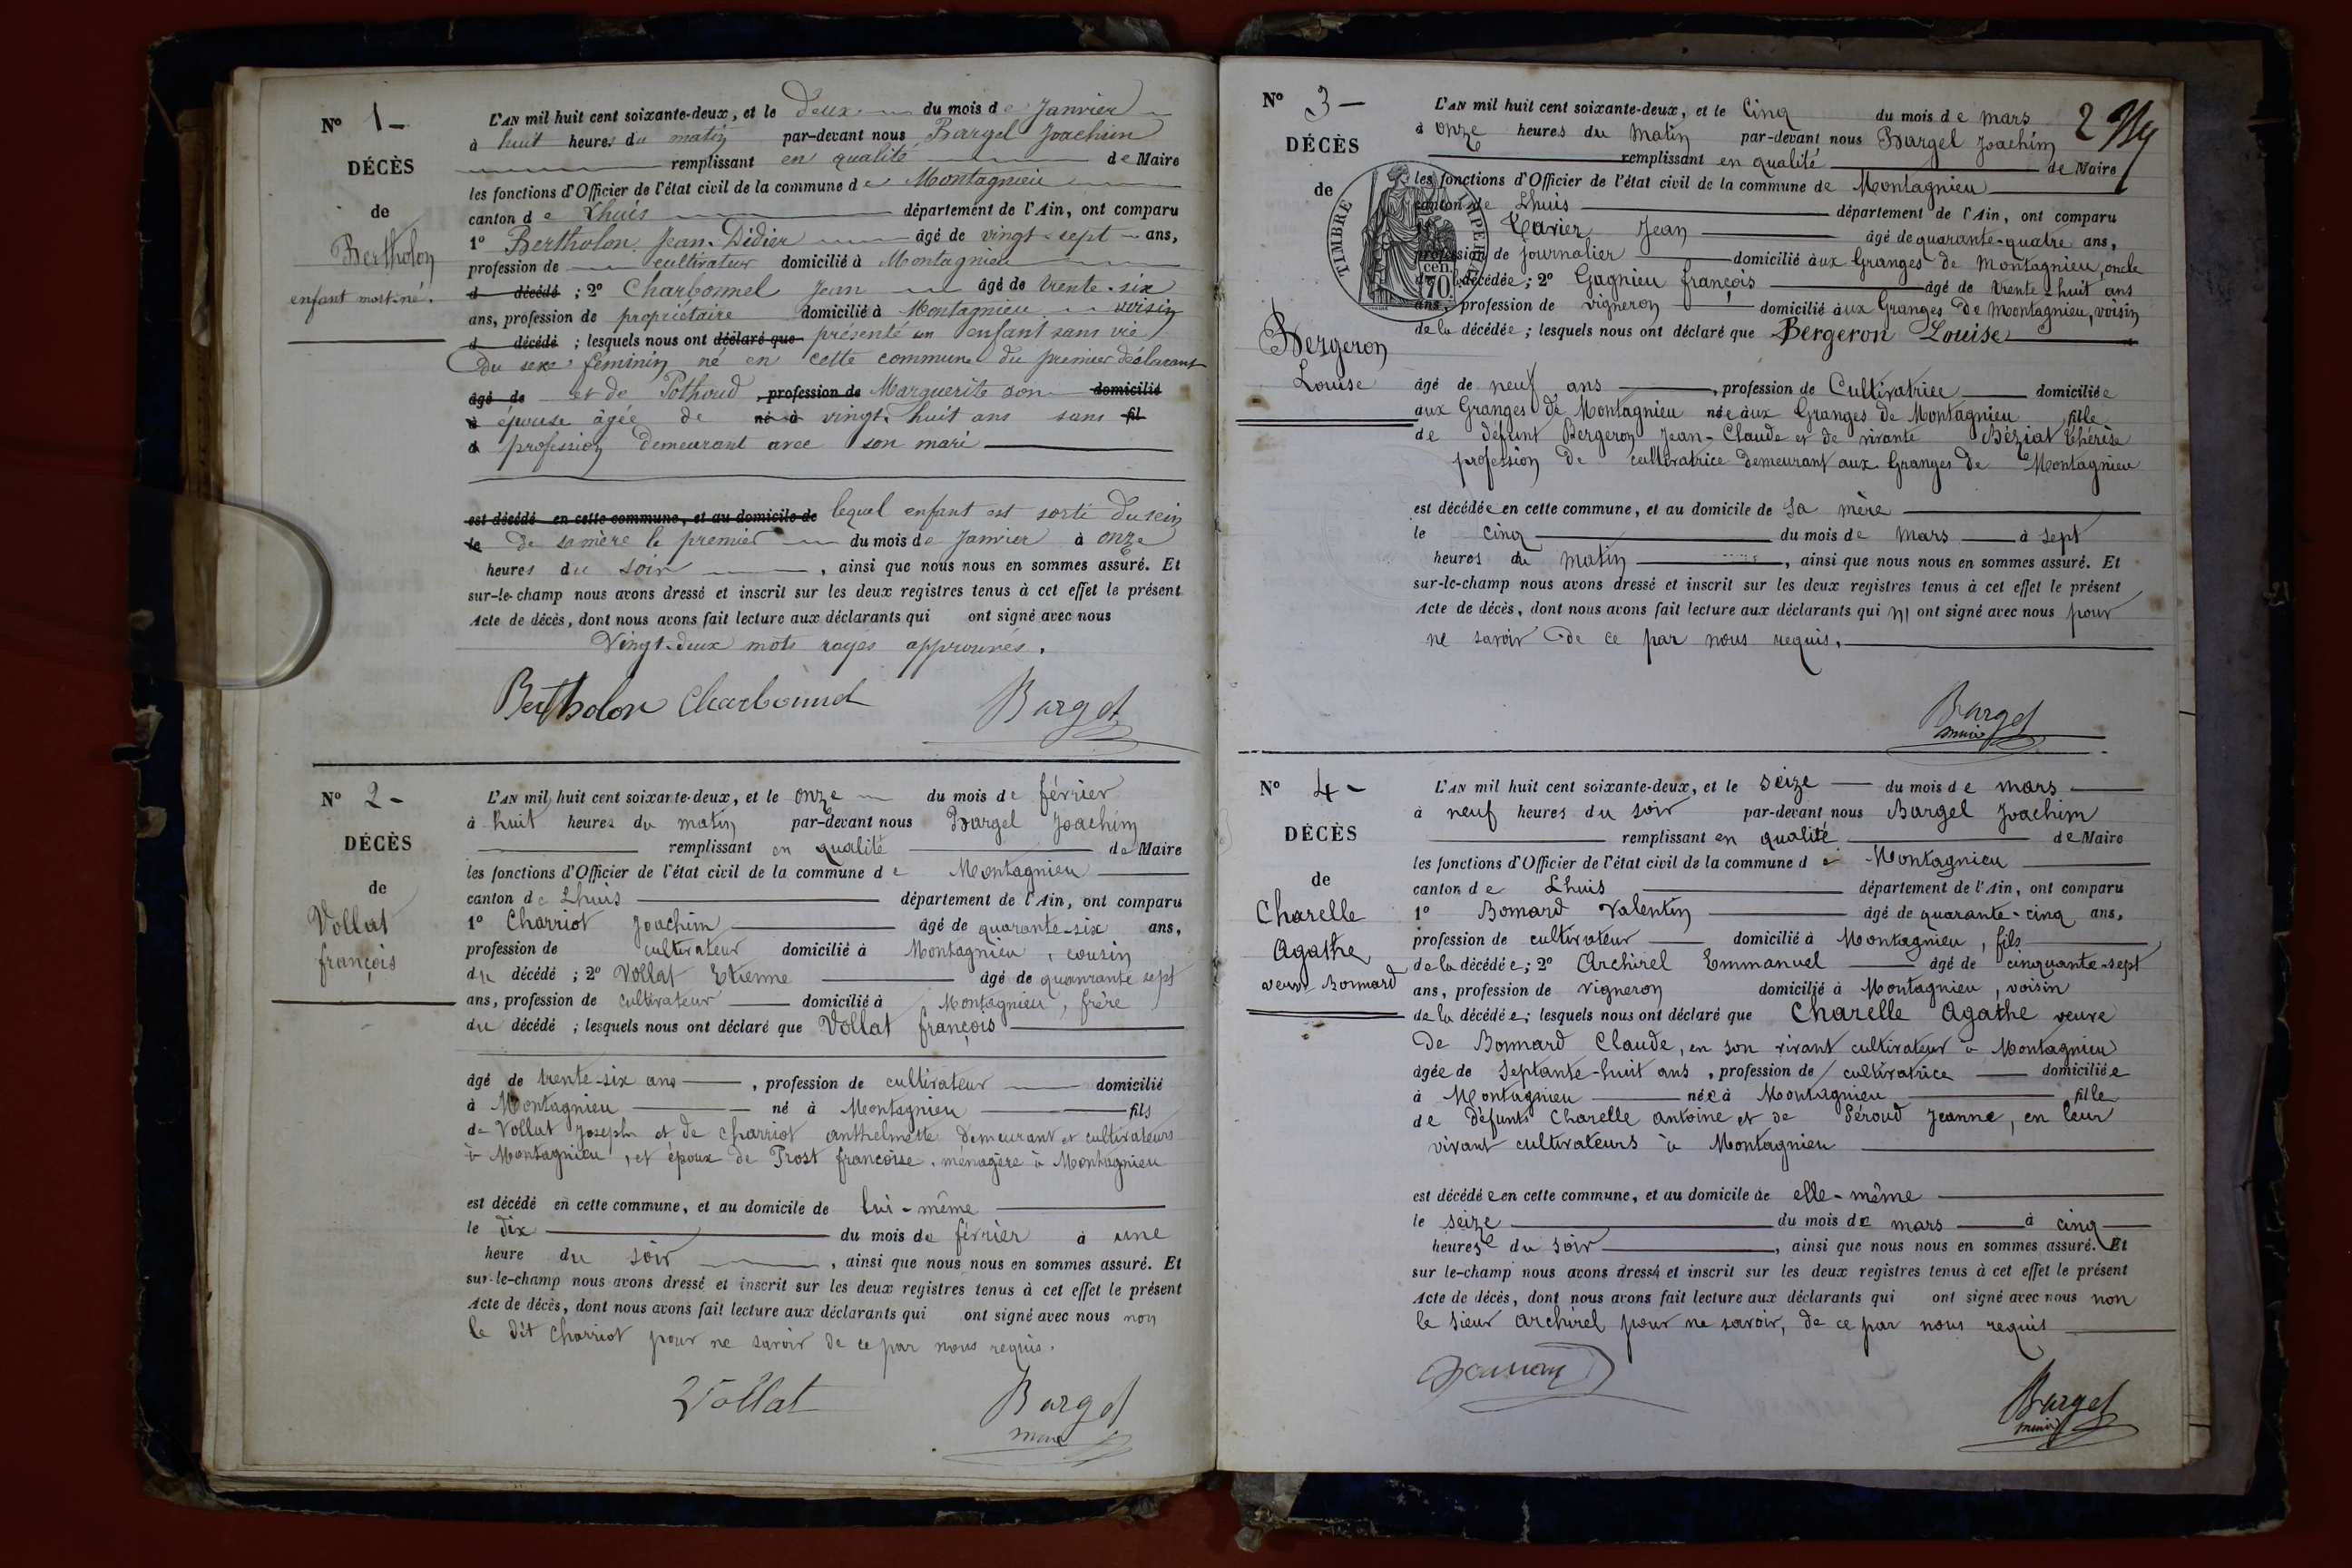 N° 1 -
DÉCÈS
de
Bertholon
enfant mort-né.
L'AN mil huit cent soixante-deux, et le deux du mois de Janvier
à huit heures du matin par-devant nous Bargel Joachim
remplissant en qualité de Maire
les fonctions d'Officier de l'état civil de la commune de Montagnieu
canton de Lhuis département de l'Ain, ont comparu
1° Bertholon Jean-Didier âgé de vingt-sept ans,
profession de cultivateur domicilié à Montagnieu
d décédé ; 2° Charbonnel Jean âgé de trente-six
ans, profession de propriétaire domicilié à Montagnieu voisin
d décédé ; lesquels nous ont déclaré que présenté un enfant sans vie
du sexe féminin né en cette commune du premier déclarant
âgé de et de Pothoud , profession de Marguerite son domicilié
à épouse âgée de né à vingt-huit ans sans fil
d profession demeurant avec son mari
est décédé en cette commune, et au domicile de lequel enfant est sorti du sein
le de sa mère le premier du mois de Janvier à onze
heures du soir , ainsi que nous nous en sommes assuré. Et
sur-le-champ nous avons dressé et inscrit sur les deux registres tenus à cet effet le présent
Acte de décès, dont nous avons fait lecture aux déclarants qui ont signé avec nous
Vingt-deux mots rayés approuvés.
Bertholon Charbonnel Bargel
N° 2 -
DÉCÈS
de
Vollat
françois
L'AN mil huit cent soixante-deux, et le onze du mois de février
à huit heures du matin par-devant nous Bargel Joachim
remplissant en qualité de Maire
les fonctions d'Officier de l'état civil de la commune de Montagnieu
canton de Lhuis département de l'Ain, ont comparu
1° Charriot Joachim âgé de quarante-six ans,
profession de cultivateur domicilié à Montagnieu, cousin
du décédé ; 2° Vollat Etienne âgé de quanrante sept
ans, profession de cultivateur domicilié à Montagnieu, frère
du décédé ; lesquels nous ont déclaré que Vollat françois
âgé de trente-six ans , profession de cultivateur domicilié
à Montagnieu né à Montagnieu fils
de Vollat Joseph et de Charriot anthelmette demeurant et cultivateurs
à Montagnieu, et époux de Prost françoise, ménagère à Montagnieu
est décédé en cette commune, et au domicile de lui-même
le dix du mois de février à une
heure du soir , ainsi que nous nous en sommes assuré. Et
sur-le-champ nous avons dressé et inscrit sur les deux registres tenus à cet effet le présent
Acte de décès, dont nous avons fait lecture aux déclarants qui ont signé avec nous non
le dit Charriot pour ne savoir de ce par nous requis.
Vollat Bargel
maire
2
N° 3 -
DÉCÈS
de
TIMBRE IMPERIAL
70 cen.
Bergeron
Louise
L'AN mil huit cent soixante-deux, et le cinq du mois de mars
à onze heures du matin par-devant nous Bargel Joachim
remplissant en qualité de Maire
les fonctions d'Officier de l'état civil de la commune de Montagnieu
canton de Lhuis département de l'Ain, ont comparu
Cavier Jean âgé de quarante-quatre ans,
profession de journalier domicilié aux Granges de Montagnieu, oncle
de la décédée ; 2° Gagnieu françois âgé de trente-huit ans
ans, profession de vigneron domicilié aux Granges de Montagnieu, voisin
de la décédée ; lesquels nous ont déclaré que Bergeron Louise
âgé de neuf ans , profession de Cultivatrice domiciliée
aux Granges de Montagnieu née aux Granges de Montagnieu fille
de défunt Bergeron Jean-Claude et de vivante Béziat thérèse
profession de cultivatrice demeurant aux Granges de Montagnieu
est décédée en cette commune, et au domicile de sa mère
le cinq du mois de mars à sept
heures du matin , ainsi que nous nous en sommes assuré. Et
sur-le-champ nous avons dressé et inscrit sur les deux registres tenus à cet effet le présent
Acte de décès, dont nous avons fait lecture aux déclarants qui n'ont signé avec nous pour
ne savoir de ce par nous requis.
Bargel
maire
N° 4 -
DÉCÈS
de
Charelle
Agathe
veuve Bonnard
L'AN mil huit cent soixante-deux, et le seize du mois de mars
à neuf heures du soir par-devant nous Bargel Joachim
remplissant en qualité de Maire
les fonctions d'Officier de l'état civil de la commune de Montagnieu
canton de Lhuis département de l'Ain, ont comparu
1° Bonnard Valentin âgé de quarante-cinq ans,
profession de cultivateur domicilié à Montagnieu, fils
de la décédée ; 2° Archirel Emmanuel âgé de cinquante-sept
ans, profession de vigneron domicilié à Montagnieu, voisin
de la décédée ; lesquels nous ont déclaré que Charelle Agathe veuve
de Bonnard Claude, en son vivant cultivateur à Montagnieu
âgée de septante-huit ans , profession de cultivatrice domiciliée
à Montagnieu née à Montagnieu fille
de défunts Charelle antoine et de Séroud Jeanne, en leur
vivant cultivateurs à Montagnieu
est décédée en cette commune, et au domicile de elle-même
le seize du mois de mars à cinq
heures du soir , ainsi que nous nous en sommes assuré. Et
sur le-champ nous avons dressé et inscrit sur les deux registres tenus à cet effet le présent
Acte de décès, dont nous avons fait lecture aux déclarants qui ont signé avec nous non
le sieur archirel pour ne savoir, de ce par nous requis
Bargel
maire